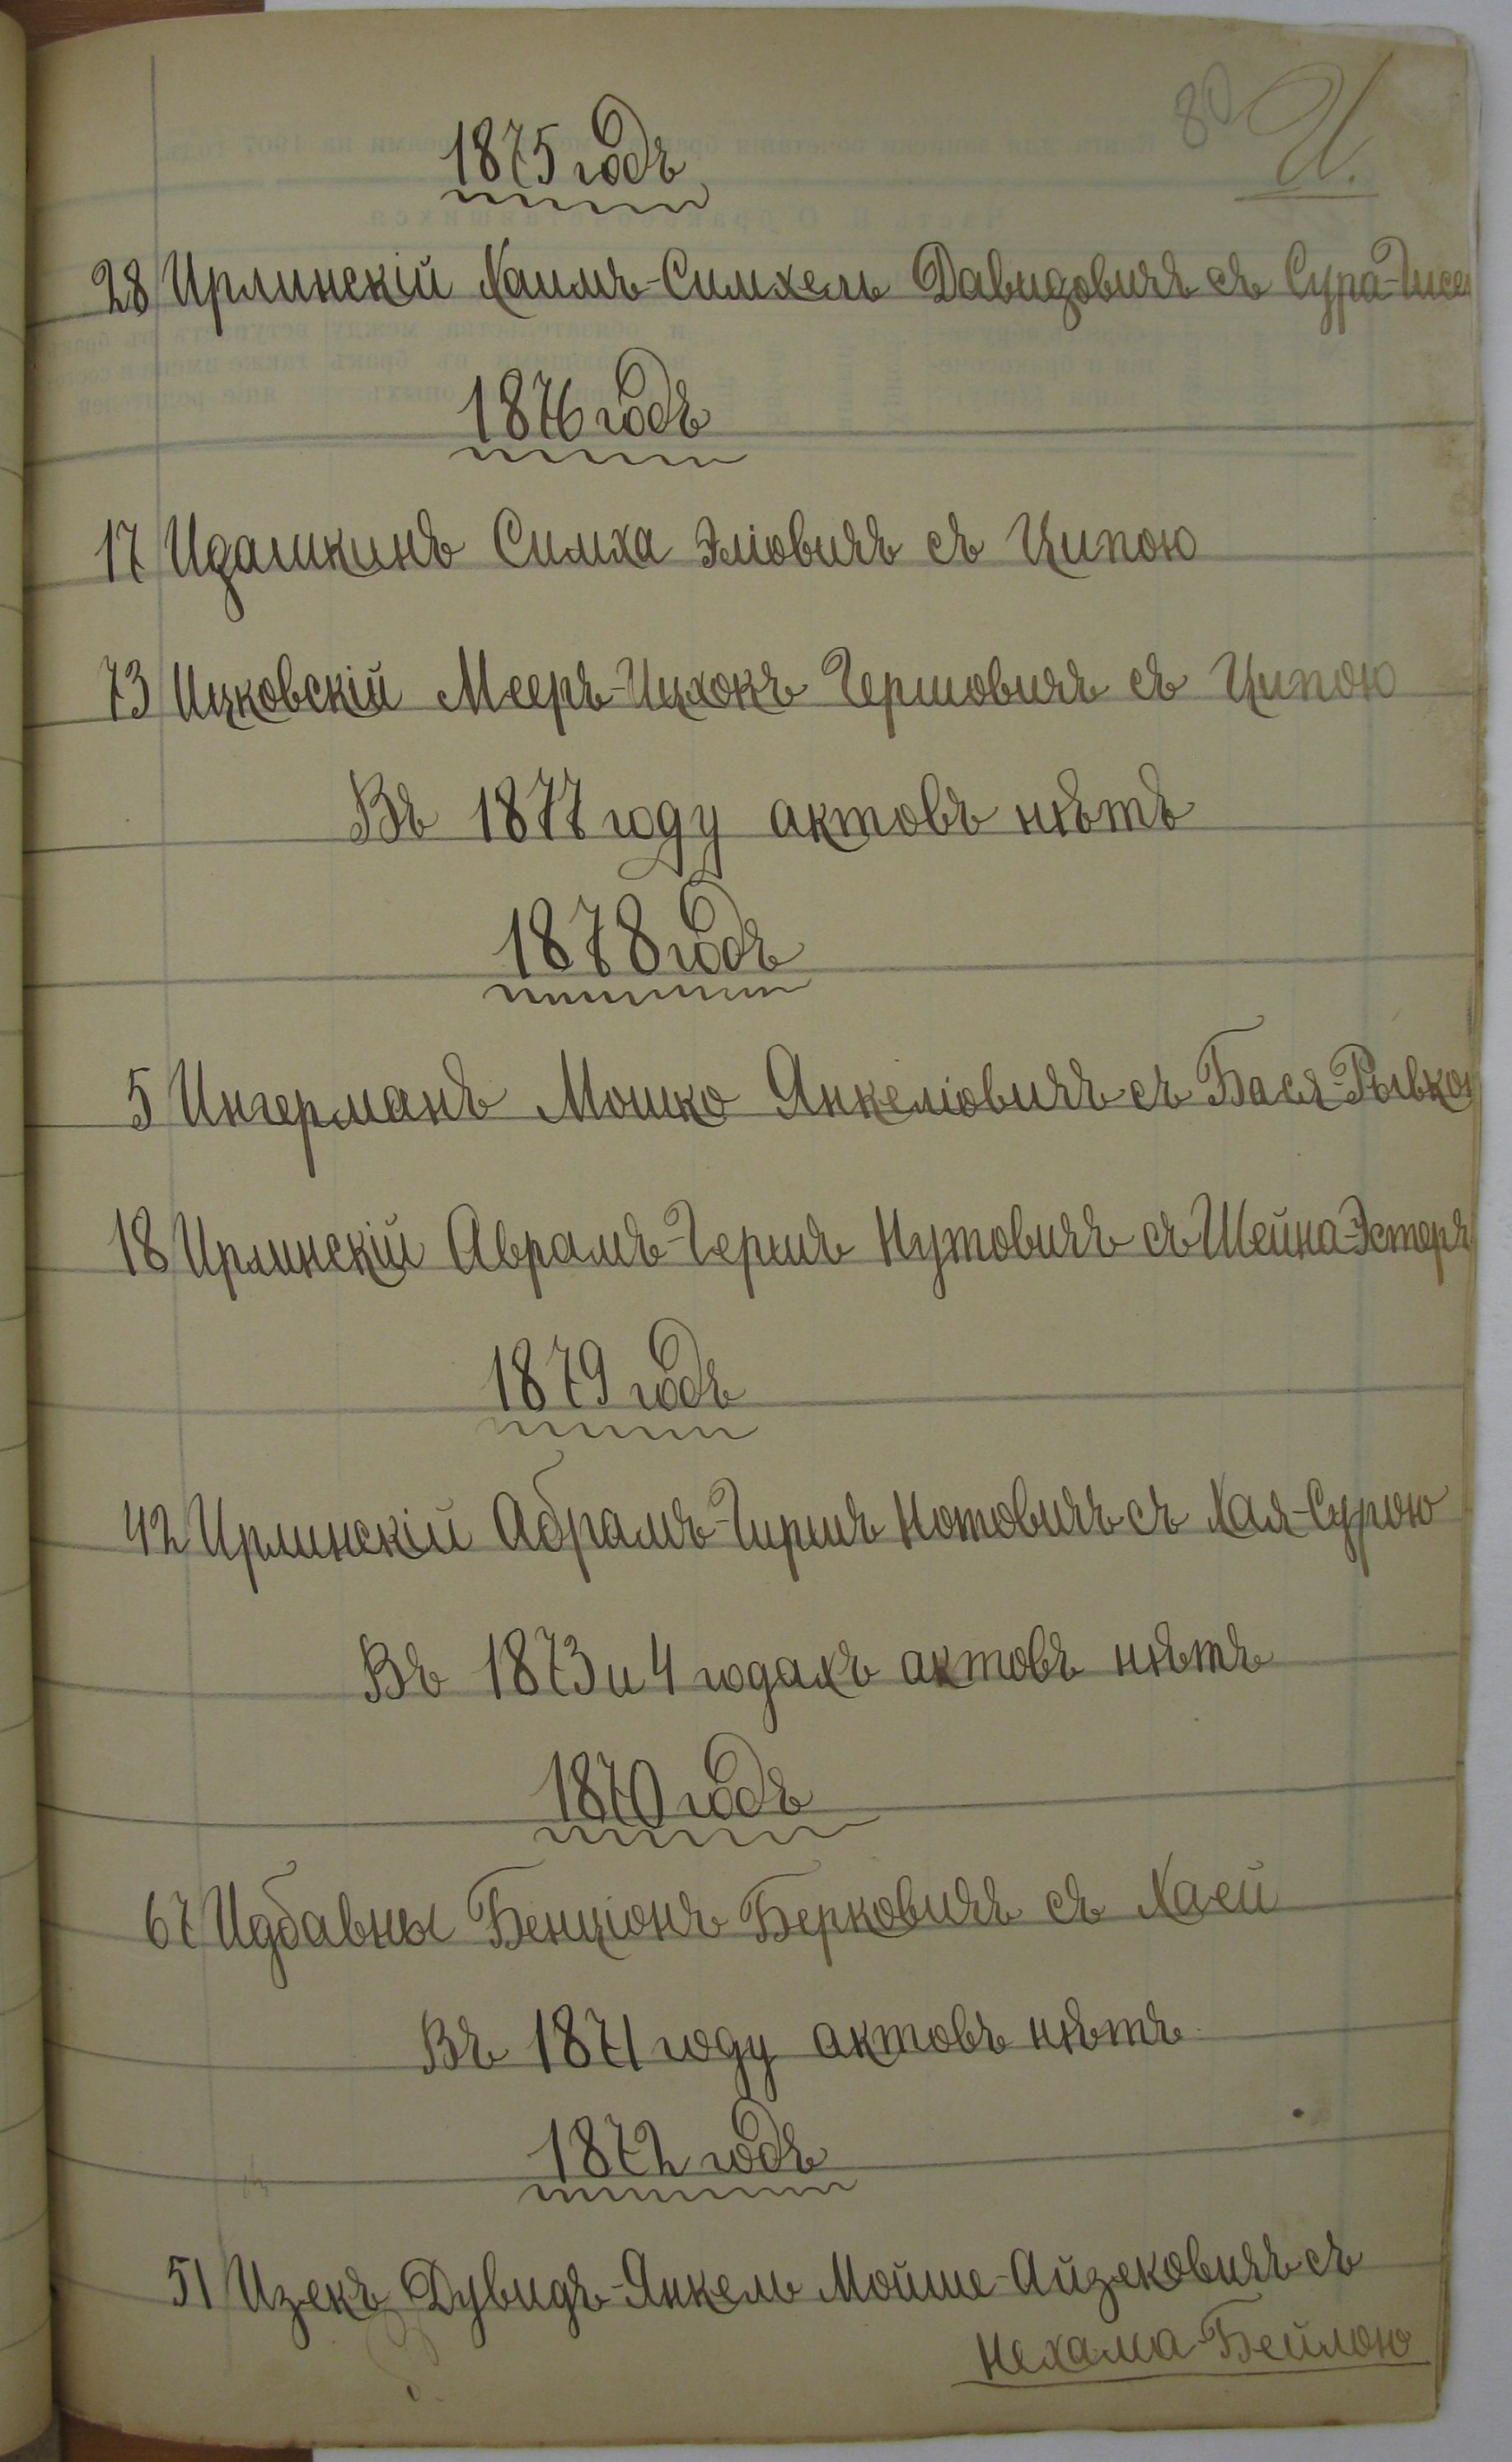 80 И.
1875 годъ
28 Ирлинскій Хаимъ-Симхель Давидовичъ съ Сура-
1876 годъ
17 Идашкинъ Симха Эліовичъ съ Ципою
73 Ицковскій Мееръ-Ицхокъ Гершовичъ съ Ципою
Въ 1877 году актовъ нѣтъ
1878 годъ
5 Ингерманъ Мошко Янкеліовичъ съ Бася-Рывкою
18 Ирлинскій Аврамъ-Гершъ Нутовичъ съ Шейна-Эстеръ
1879 годъ
42 Ирлинскій Абрамъ-Гиршъ Нотовичъ съ Хая-Сурою
Въ 1873 и 4 годахъ актовъ нѣтъ
1870 годъ
67 Идбавны Бенціонъ Берковичъ съ Хаей
Въ 1871 году актовъ нѣтъ
1872 годъ
51 Изекъ Дувидъ-Янкель Мойше-Айзековичъ съ
Нехама-Бейлою